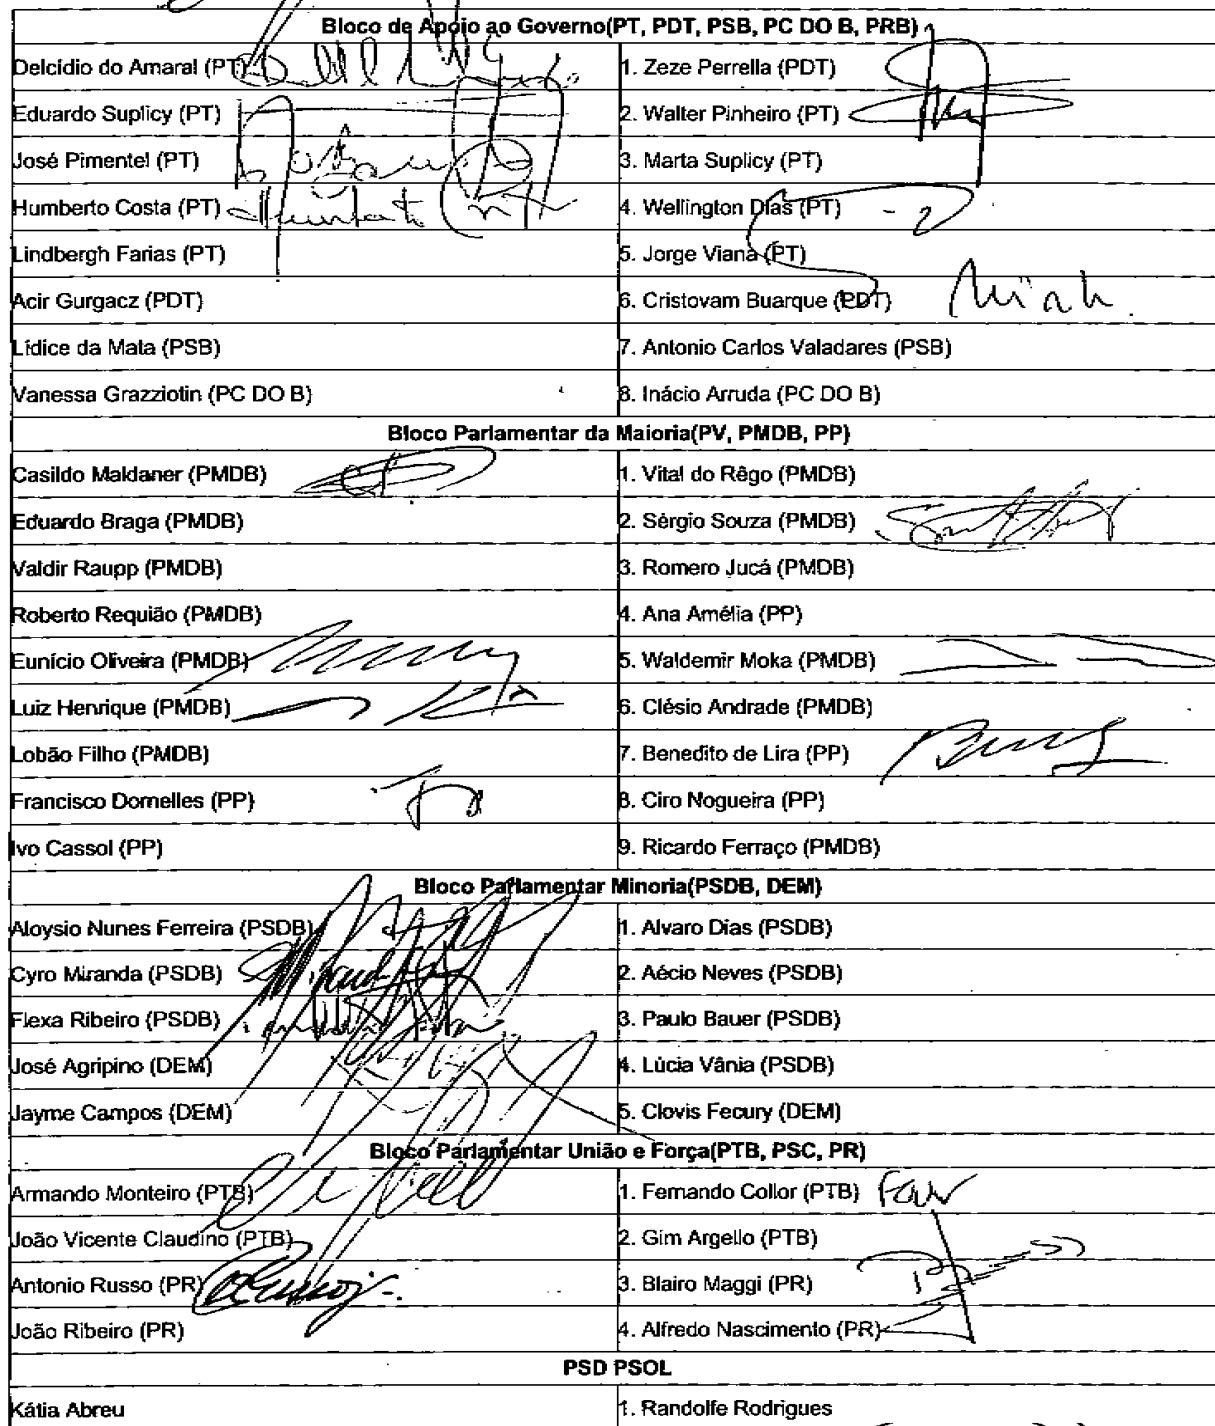 Bloco de Apoio ao Governo(PT, PDT, PSB, PC DO B, PRB)
Delcídio do Amaral (PT) 1. Zeze Perrella (PDT)
Eduardo Suplicy (PT) 2. Walter Pinheiro (PT)
José Pimentel (PT) 3. Marta Suplicy (PT)
Humberto Costa (PT) 4. Wellington Dias (PT)
Lindbergh Farias (PT) 5. Jorge Viana (PT)
Acir Gurgacz (PDT) 6. Cristovam Buarque (PDT)
Lídice da Mata (PSB) 7. Antonio Carlos Valadares (PSB)
Vanessa Grazziotin (PC DO B) 8. Inácio Arruda (PC DO B)
Bloco Parlamentar da Maioria(PV, PMDB, PP)
Casildo Maldaner (PMDB) 1. Vital do Rêgo (PMDB)
Eduardo Braga (PMDB) 2. Sérgio Souza (PMDB)
Valdir Raupp (PMDB) 3. Romero Jucá (PMDB)
Roberto Requião (PMDB) 4. Ana Amélia (PP)
Eunício Oliveira (PMDB) 5. Waldemir Moka (PMDB)
Luiz Henrique (PMDB) 6. Clésio Andrade (PMDB)
Lobão Filho (PMDB) 7. Benedito de Lira (PP)
Francisco Dornelles (PP) 8. Ciro Nogueira (PP)
Ivo Cassol (PP) 9. Ricardo Ferraço (PMDB)
Bloco Parlamentar Minoria(PSDB, DEM)
Aloysio Nunes Ferreira (PSDB) 1. Alvaro Dias (PSDB)
Cyro Miranda (PSDB) 2. Aécio Neves (PSDB)
Flexa Ribeiro (PSDB) 3. Paulo Bauer (PSDB)
José Agripino (DEM) 4. Lúcia Vânia (PSDB)
Jayme Campos (DEM) 5. Clovis Fecury (DEM)
Bloco Parlamentar União e Força(PTB, PSC, PR)
Armando Monteiro (PTB) 1. Fernando Collor (PTB)
João Vicente Claudino (PTB) 2. Gim Argello (PTB)
Antonio Russo (PR) 3. Blairo Maggi (PR)
João Ribeiro (PR) 4. Alfredo Nascimento (PR)
PSD PSOL
Kátia Abreu 1. Randolfe Rodrigues